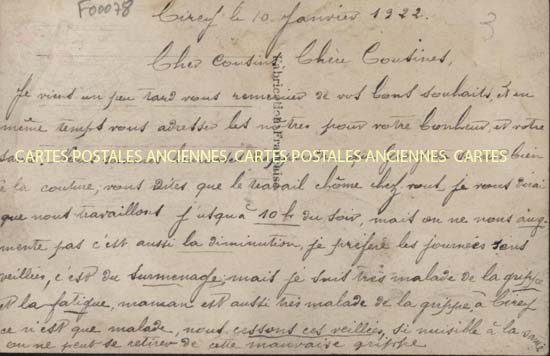 F00078
Cirey le 10 Janvier 1922.
3
Cher Cousin, Chère Cousines,
Je viens un peu tard vous remercier de vos bons souhaits, et en
même temps vous adresser les nôtres pour votre bonheur et votre
CARTES POSTALES ANCIENNES CARTES POSTALES ANCIENNES CARTES
bien
à la couture, vous dites que le travail chôme chez vous je vous dirai
que nous travaillons jusqu'à 10 h du soir, mais on ne nous aug-
mente pas c'est aussi la diminution, je préfère les journées sans
veillées, c'est du surmenage; mais je suis très malade de la grippe
et la fatigue, maman est aussi très malade de la grippe, à Cirey
ce n'est que malade, nous cessons ces veillées, si nuisible à la santé
on ne peut se retirer de cette mauvaise grippe
Fabrication Française